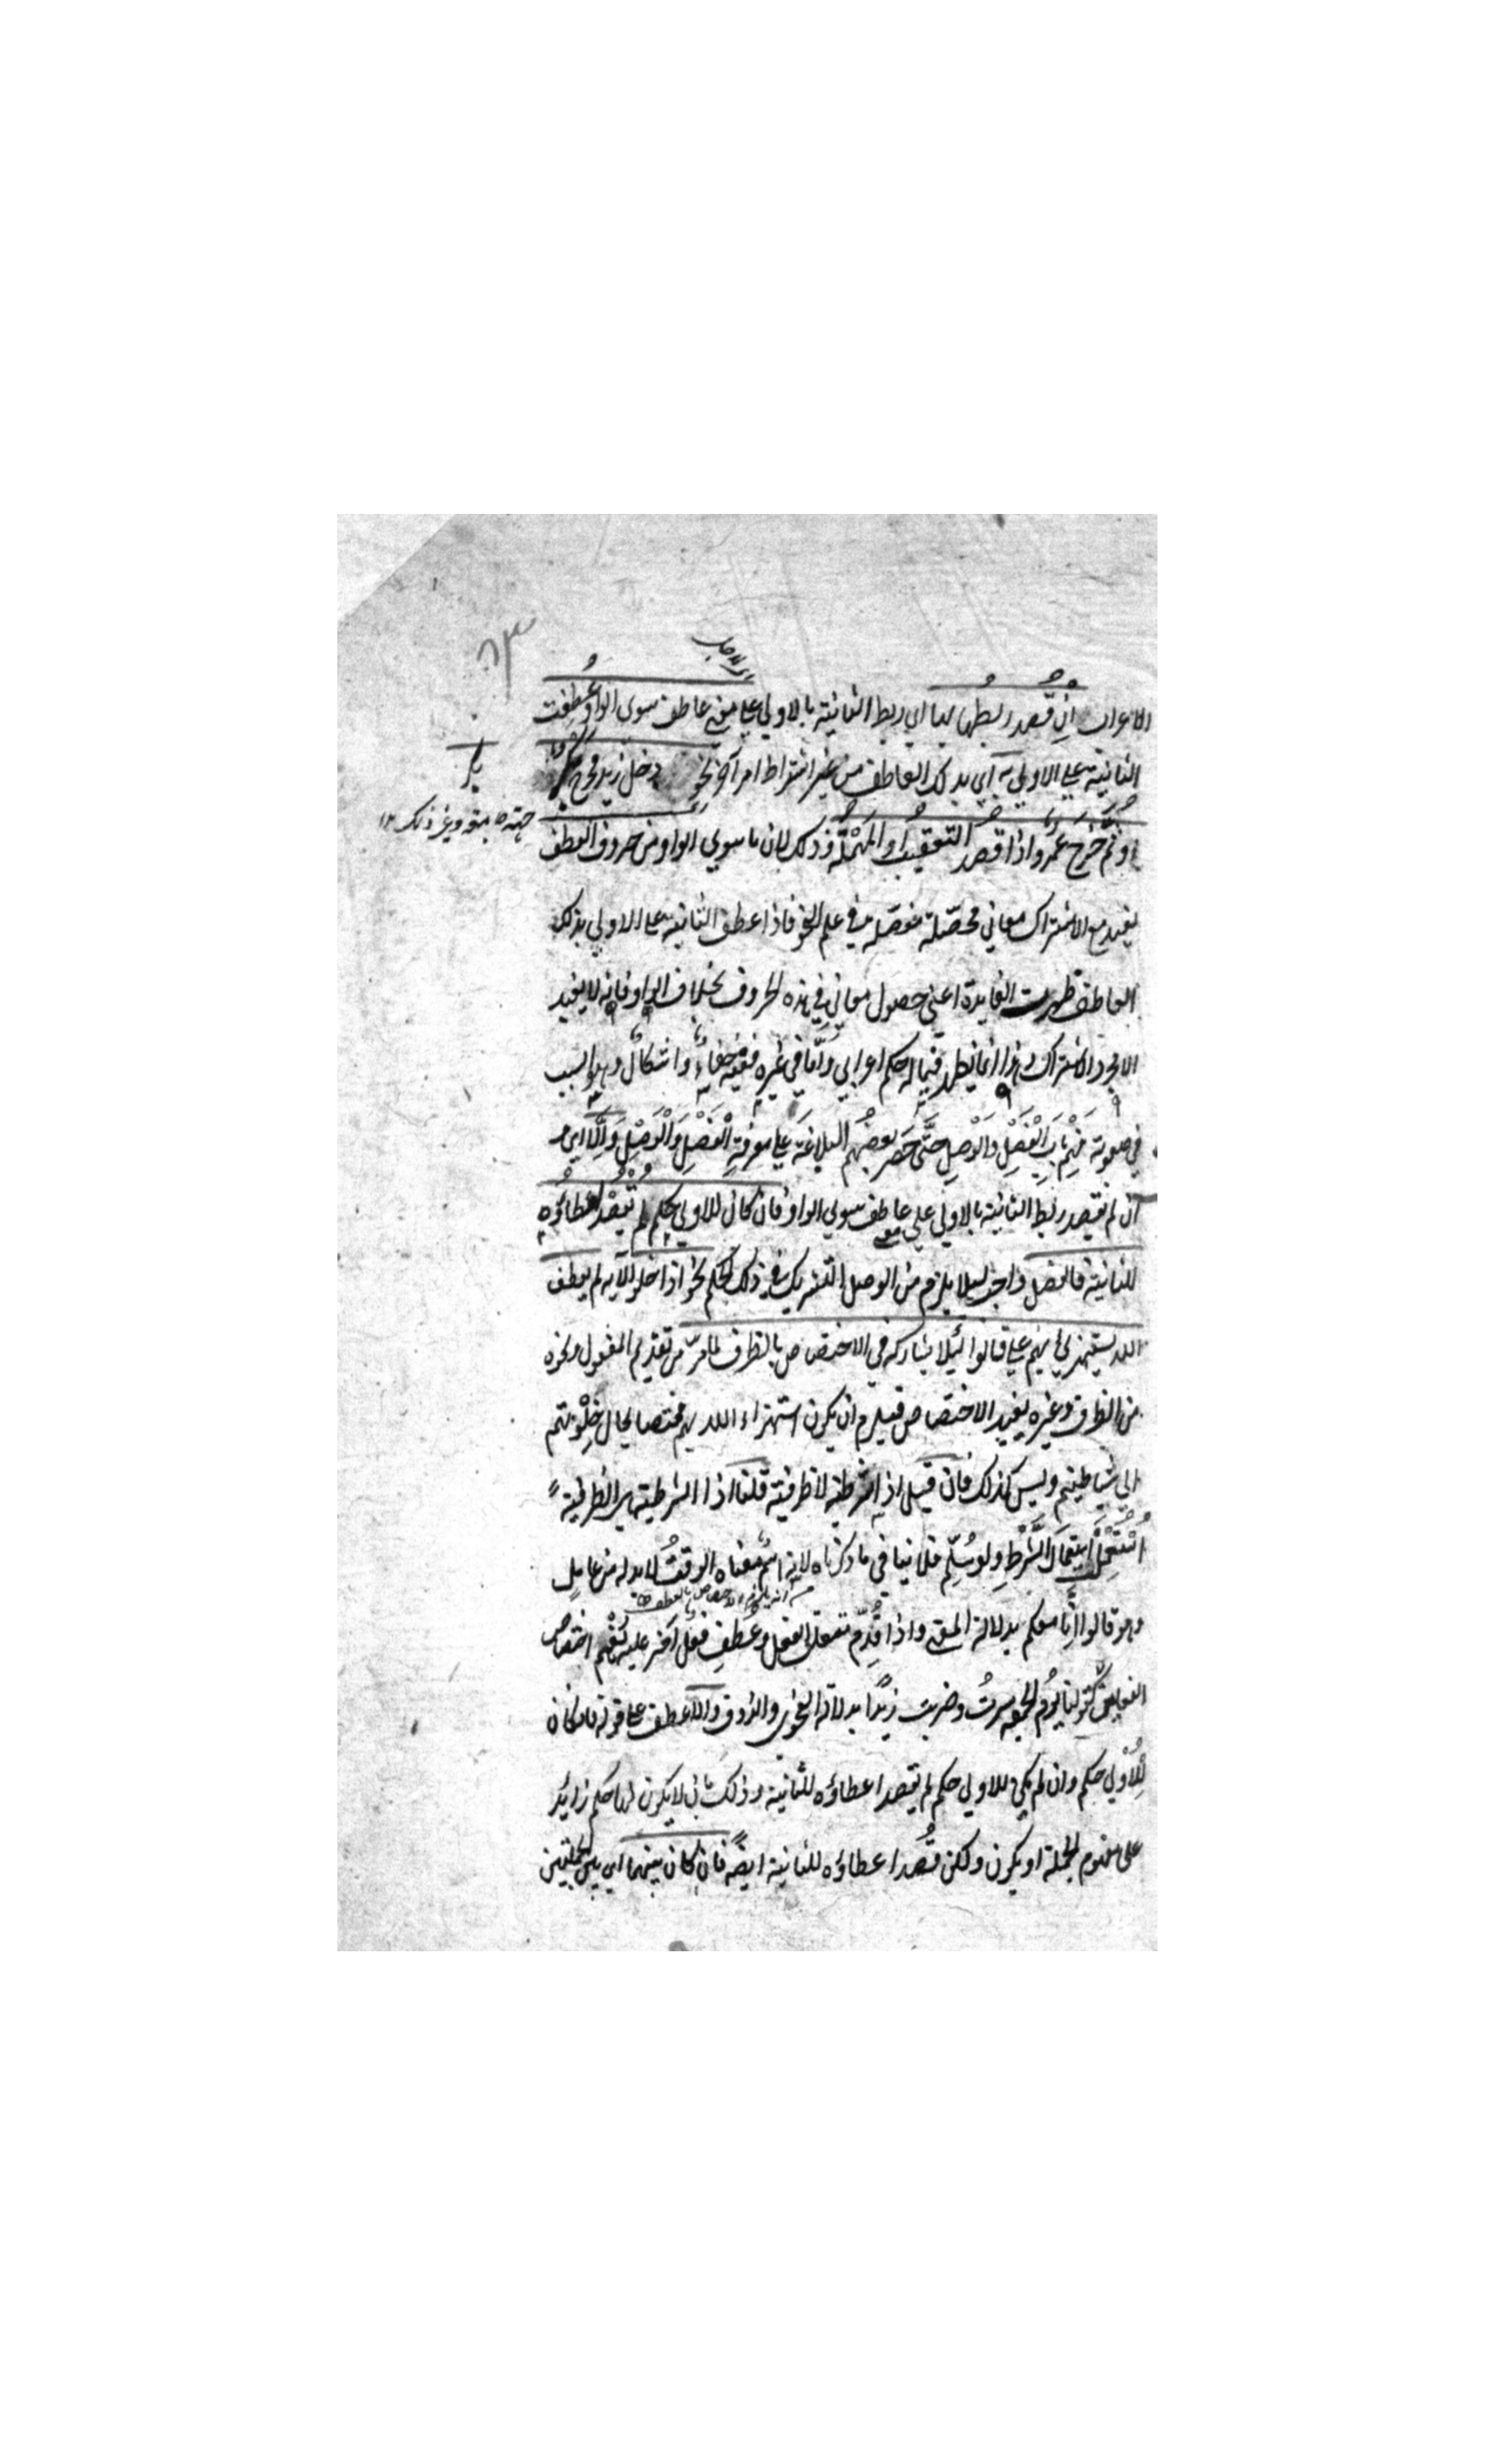 الاعراب ان قُصد ربطها بها اي ربط الثانية بالاولي علي معني عاطف سوي الواو عُطِفت
الثانية علي الاولي به اي بذلك العاطف من غير اشتراط امر آخر نحو دخل زيد فخرج عمرو
او ثُمَّ خَرَجَ عَمْرو اذا قُصد التعقيبُ او المُهْلَة وذلك لان ما سوي الواو من حروف العطف
يفيد مع الاشتراك معاني محصّلة مفصّلة في علم النحو فاذا عطف الثانية علي الاولي بذلك
العاطف ظهرت الفايدة اعني حصول معاني هذه الحروف بخلاف الواو فانه لا يفيد
الا مجرد الاشتراك وهذا انما يظهر فيما له حكم اعرابي وَاَمّا في غيره ففيه خفاءٌ واشكالٌ وهو السبب
في صعوبة بَابِ الْفَصْلِ وَالْوَصْلِ حَتَّى حَصَر بعضُهم البلاغَة علي معرفةِ الْفَصْلِ وَالْوَصْلِ وَاِلَّا اي و
ان لم يقصد ربط الثانية بالاولي علي معني عاطف سوي الواو فان كان للاولي حكم لم يُقْصَد اعطاؤه
للثانية فالفصل واجب ليلا يلزم من الوصل التشريك في ذلك الحكم نحو اذا خلوا الآية لم يعطف
الله يستهزئ بهم علي قالوا لئلا يشاركه في الاختصاص بالظرف لما مرّ من تقديم المفعول ونحوه
من الظرف وغيره يفيد الاختصاص فيلزم ان يكون استهزاء الله بهم مختصا بحال خلوتهم
الي شياطينهم وليس كذلك فان قيل اذا شرطية لا ظرفية قلنا اذا الشرطية هي الظرفية
اُسْتُعْمِلَت اسْتِعْمَالَ الشَّرْطِ ولو سُلِّم فلا ينافي ما ذكرناه لانه اسْمٌ معناه الوقتُ لا بد له من عاملٍ
وهو قالوا اِنّا معكم بدلالة المعني واذا قُدِّم متعلق الفعل وعُطِف فعلٌ آخر عليه يُفْهم اختصاص
الفعلين كقولنا يومُ الجمعة سرتُ وضربتُ زيدًا بدلالة الفحوي والذوق والا عطف علي قوله فان كان
للاُوْلي حكم وان لم يكن للاولي حكم لم يقصد اعطاؤه للثانية وذلك بان لا يكون لها حكم زايد
علي مفهوم الجملة او يكون ولكن قُصد اعطاؤه للثانية ايضًا فان كان بينهما اي بين الجملتين